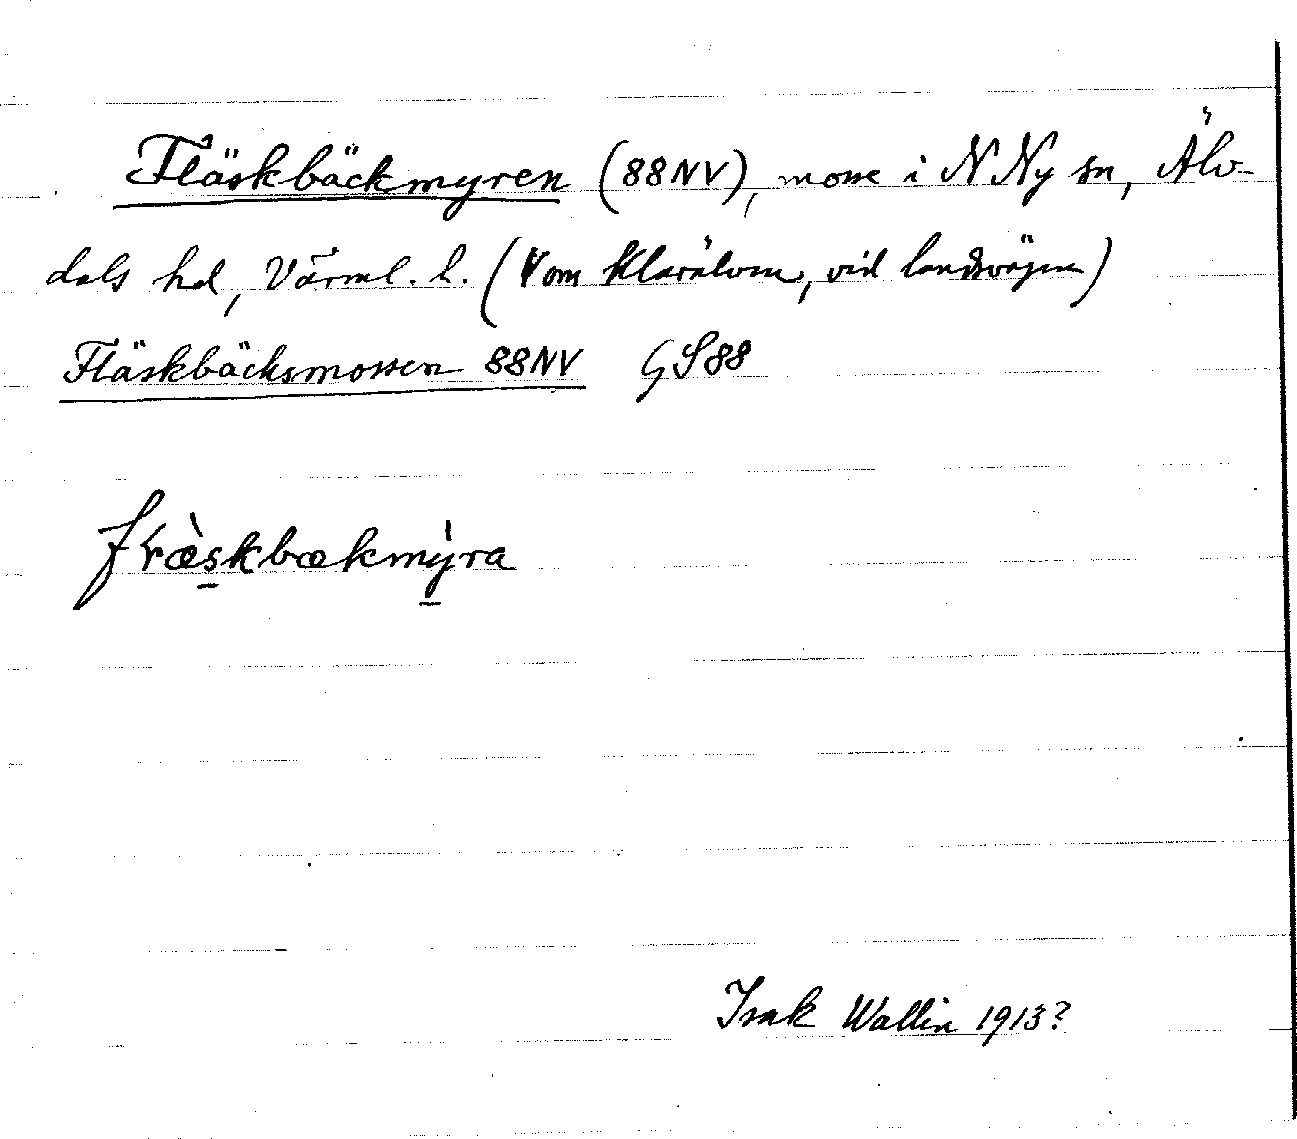 Fläskbäckmyren (88NV), mosse i N Ny sn, Älv-
dals hd, Värml. l. (V om Klarälven, vid landsvägen)
Fläskbäcksmossen 88NV GS88
fræ̀skbækmỳra
Isak Wallin 1913?